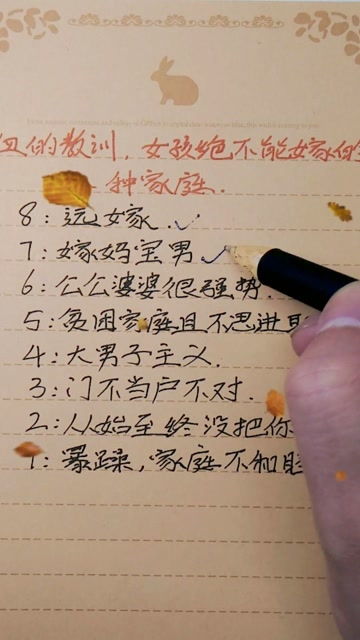 血的教训，女孩绝不能嫁的
种家庭.
8：远嫁.
7：嫁妈宝男
6：公公婆婆很强势.
5：贫困家庭且不思进取
4：大男子主义.
3：门不当户不对.
2：从始至终没把你
1：暴躁，家庭不和睦